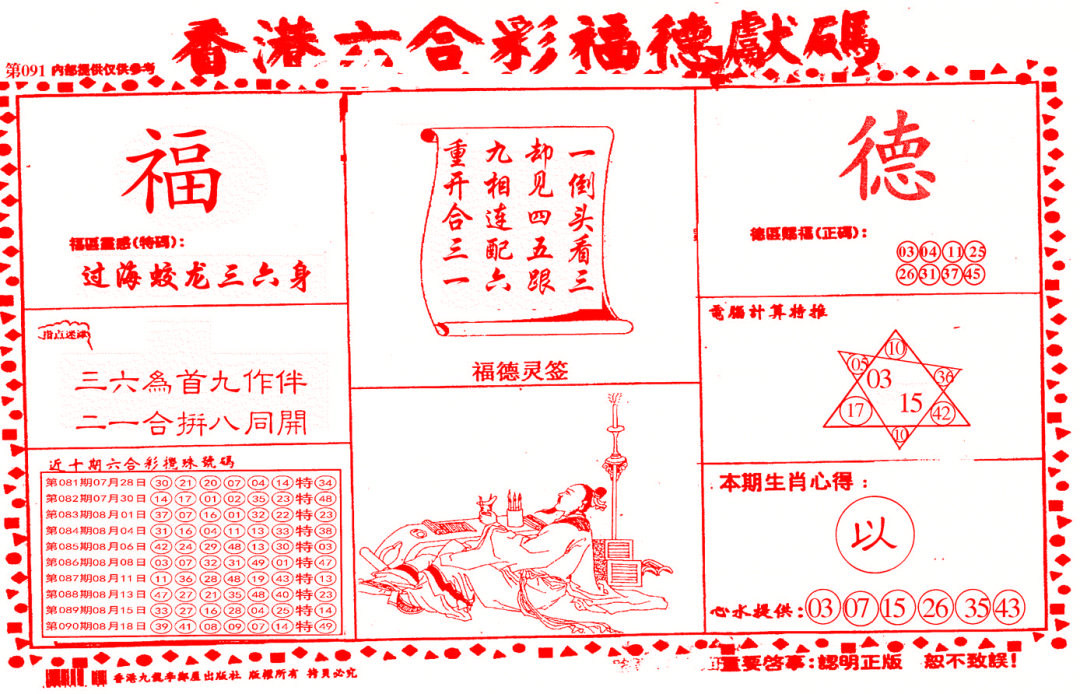 香港六合彩福德獻碼
第091 内部提供仅供参考
福
福區靈感(特碼):
过海蛟龙三六身
指点迷津
三六為首九作伴
二一合拼八同開
近十期六合彩攪珠號碼
第081期07月28日 30 21 20 07 04 14 特 34
第082期07月30日 14 17 01 02 35 23 特 48
第083期08月01日 37 07 16 01 32 22 特 23
第084期08月04日 31 16 04 11 13 33 特 38
第085期08月06日 42 24 29 48 13 30 特 03
第086期08月08日 03 07 32 31 49 01 特 47
第087期08月11日 11 36 28 48 19 43 特 13
第088期08月13日 47 27 21 35 48 40 特 23
第089期08月15日 33 27 16 28 04 25 特 14
第090期08月18日 39 41 08 09 07 14 特 49
一倒头看三
却见四五跟
九相连配六
重开合三一
福德灵签
德
德區賜福(正碼):
03 04 11 25
26 31 37 45
電腦計算特推
10
05 03 36
17 15 42
10
本期生肖心得:
以
心水提供: 03 07 15 26 35 43
香港九龍李鄭屋出版社 版權所有 拷貝必究
重要啓事:認明正版 恕不致誤!